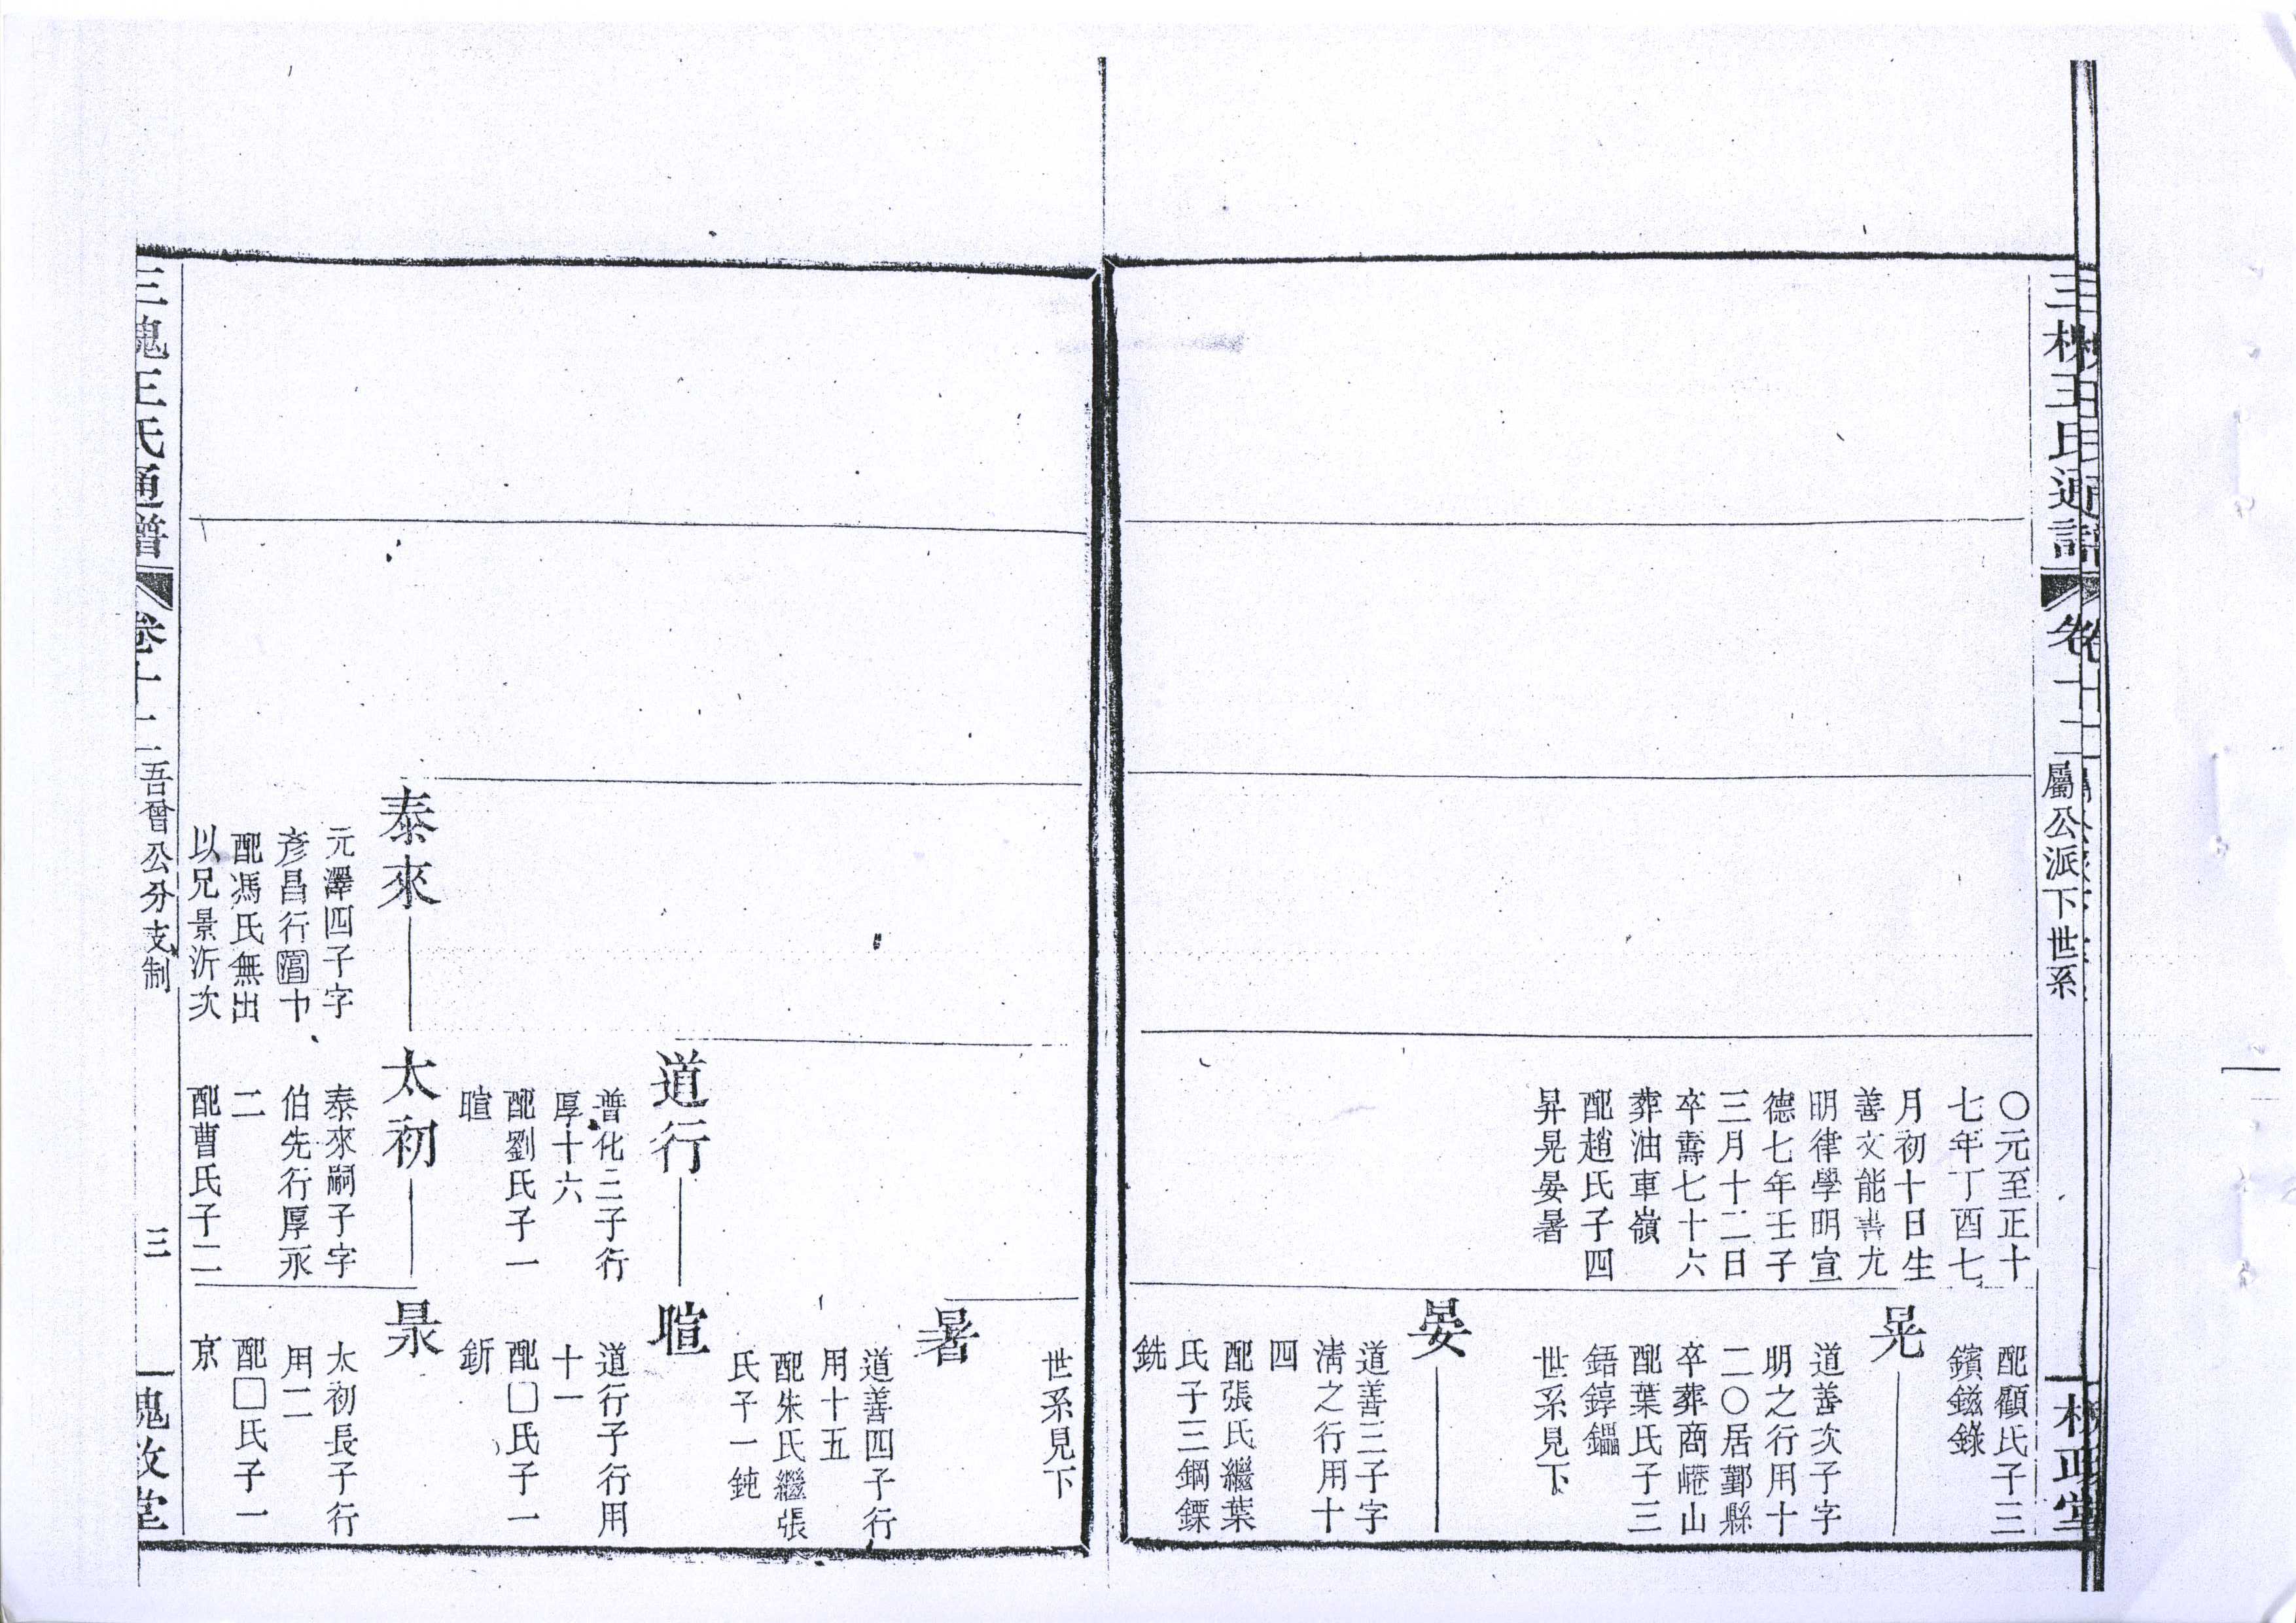 三槐王氏通譜
卷十二
屬公派下世系
槐政堂
〇元至正十
七年丁酉七
月初十日生
善文能書尤
明律學明宣
德七年壬子
三月十二日
卒壽七十六
葬油車嶺
配趙氏子四
昇晃晏暑
配顧氏子三
鑌鎡錄
晃
道善次子字
明之行用十
二〇居鄞縣
卒葬商嶝山
配葉氏子三
鋙錞鑘
世系見下
晏
道善三子字
清之行用十
四
配張氏繼葉
氏子三鋼鏢
銑
世系見下
暑
道善四子行
用十五
配朱氏繼張
氏子一鈍
道行
普化三子行
厚十六
配劉氏子一
暄
暄
道行子行用
十一
配□氏子一
釿
泰來
元澤四子字
彥昌行十
配馮氏無出
以兄景沂次
太初
泰來嗣子字
伯先行厚永
二
配曹氏子二
景
太初長子行
用二
配□氏子一
京
三槐王氏通譜
卷十二
吾晉公分支制
三
槐政堂